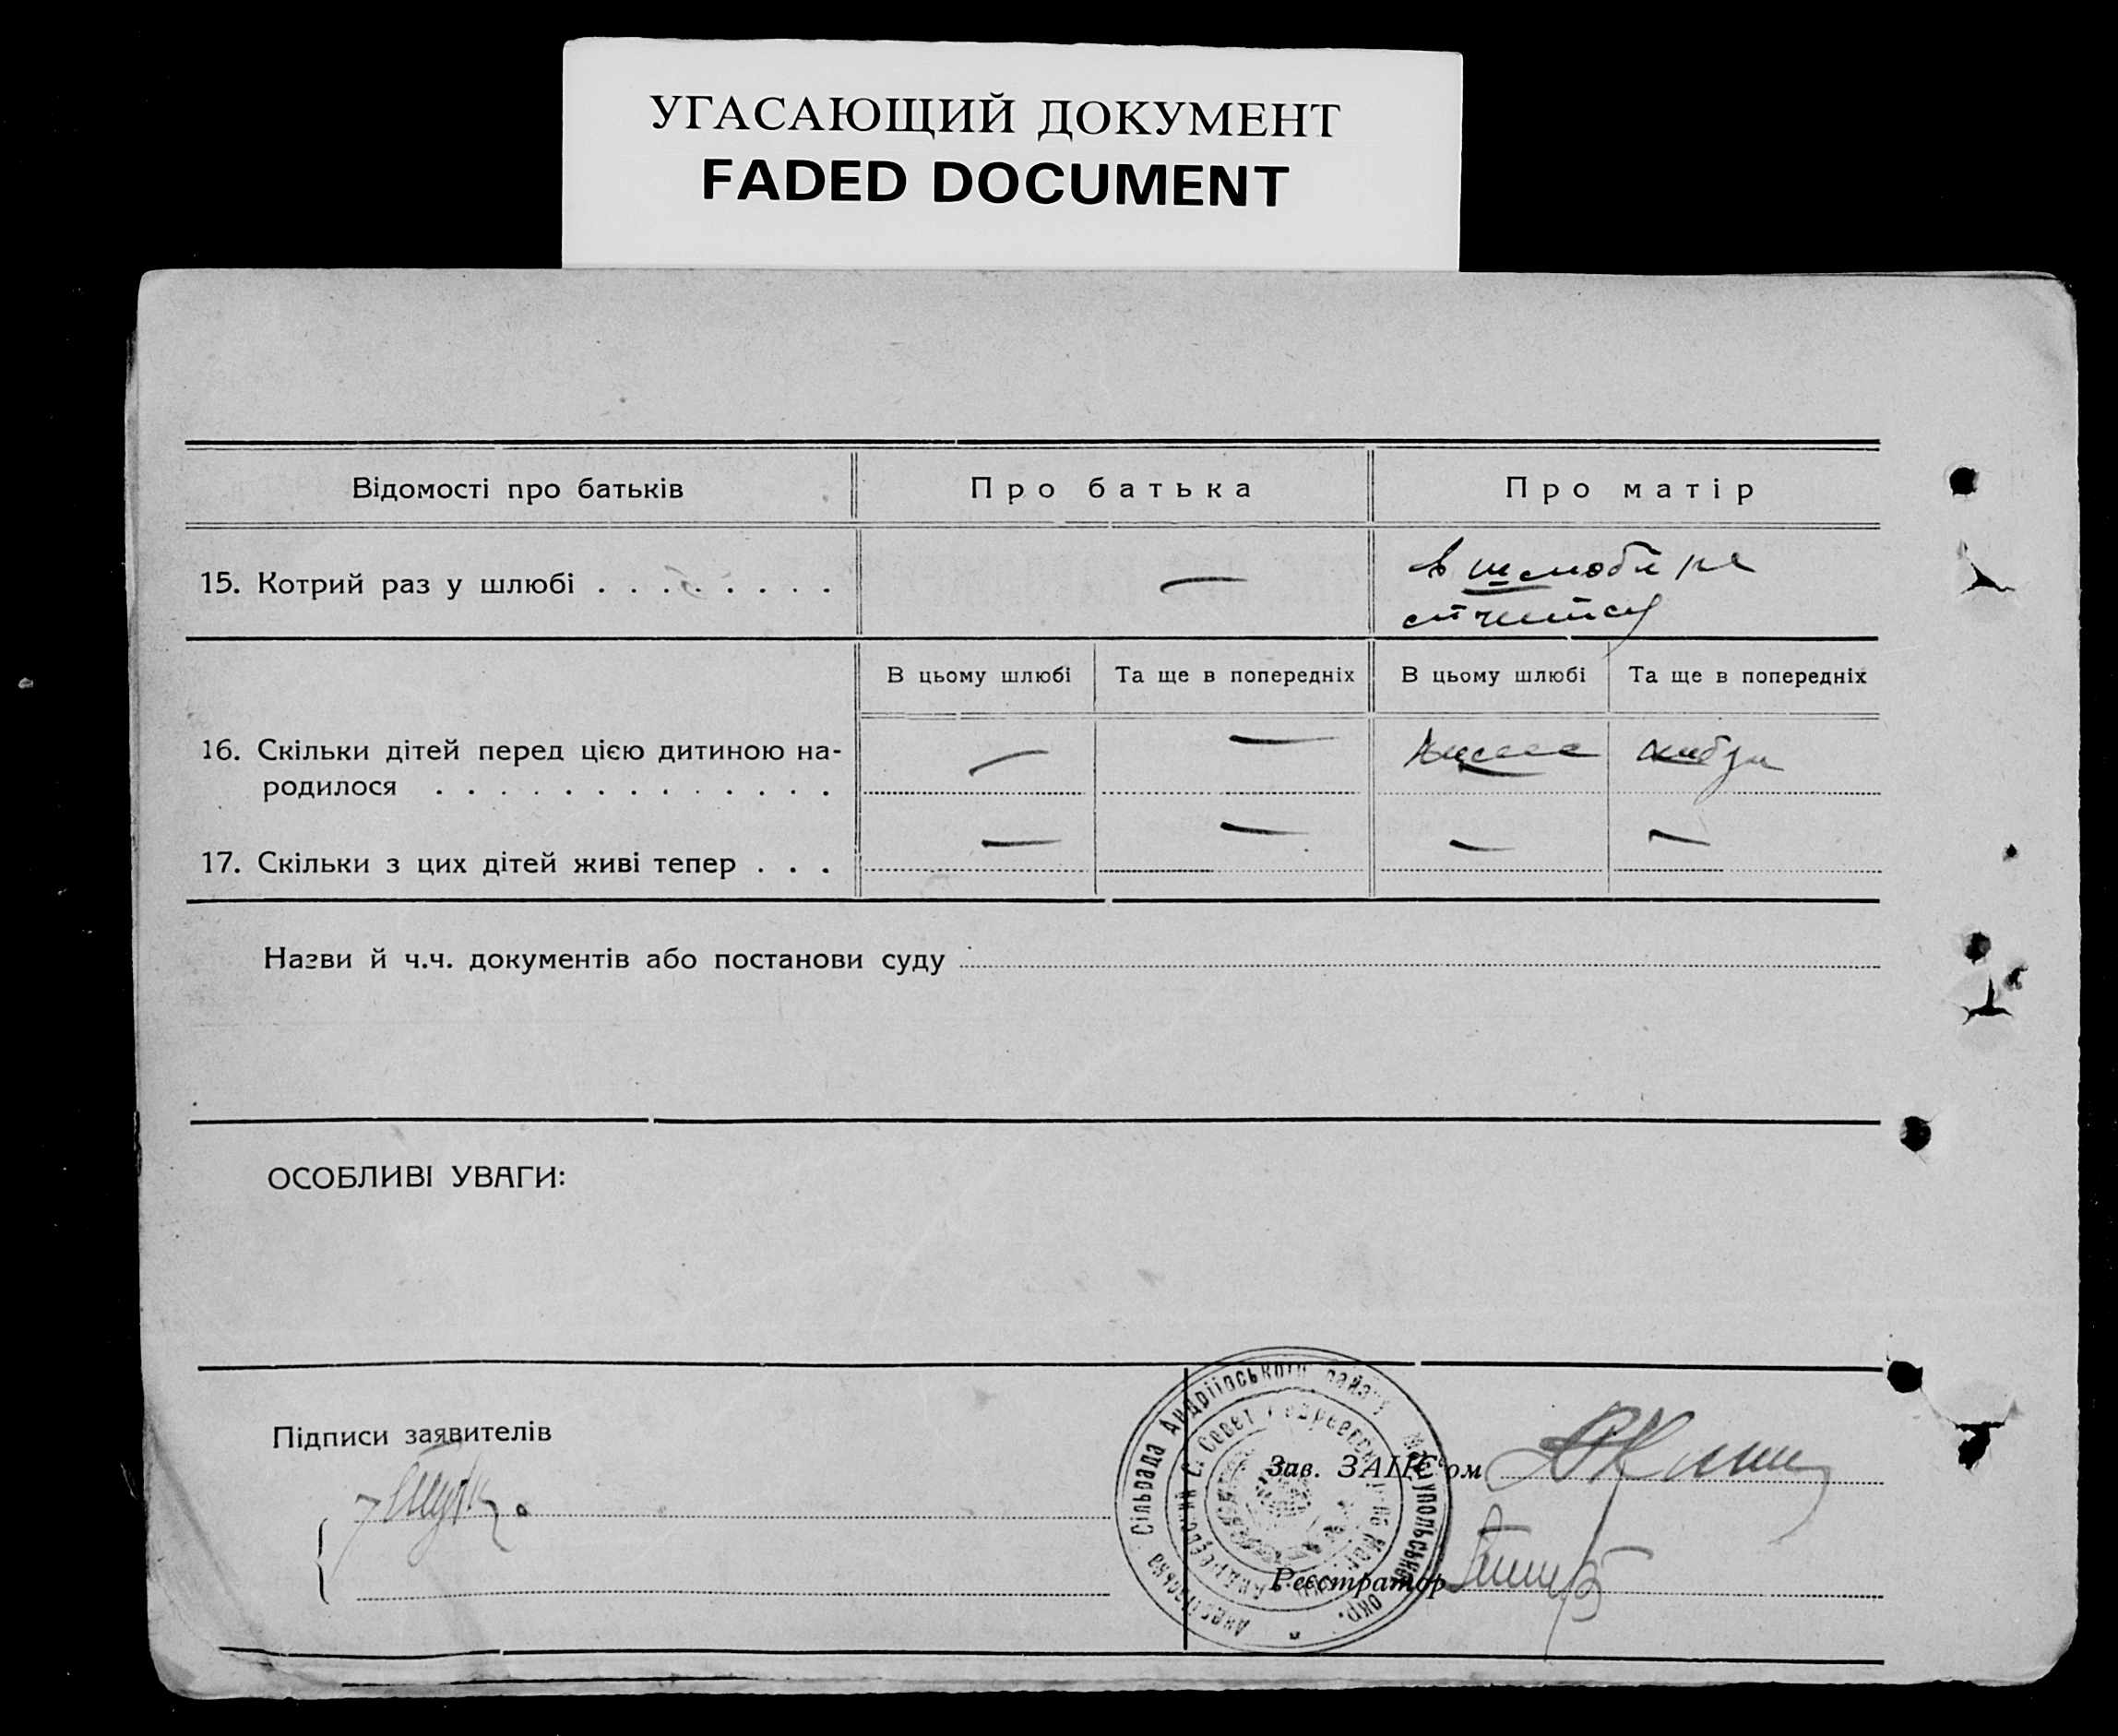 УГАСАЮЩИЙ ДОКУМЕНТ
FADED DOCUMENT
Відомості про батьків
Про батька
Про матір
15. Котрий раз у шлюбі . . . . . . . .
—
в шлюбі не
В цьому шлюбі
Та ще в попередніх
В цьому шлюбі
Та ще в попередніх
16. Скільки дітей перед цією дитиною на-
родилося . . . . . . . . . . . . .
—
—
17. Скільки з цих дітей живі тепер . . .
—
—
—
—
Назви й ч.ч. документів або постанови суду
ОСОБЛИВІ УВАГИ:
Підписи заявителів
Зав. ЗАГС'ом
Реєстратор
Сільрада Андріївського району Маріупольської окр.